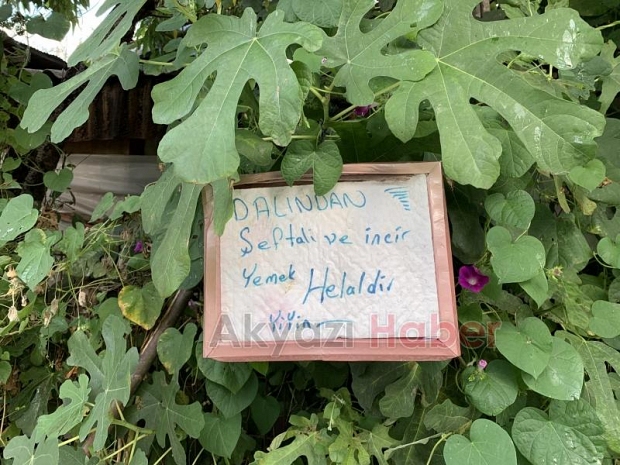 DALINDAN
Şeftali ve incir
Yemek Helaldir
Yiyin
Akyazı Haber